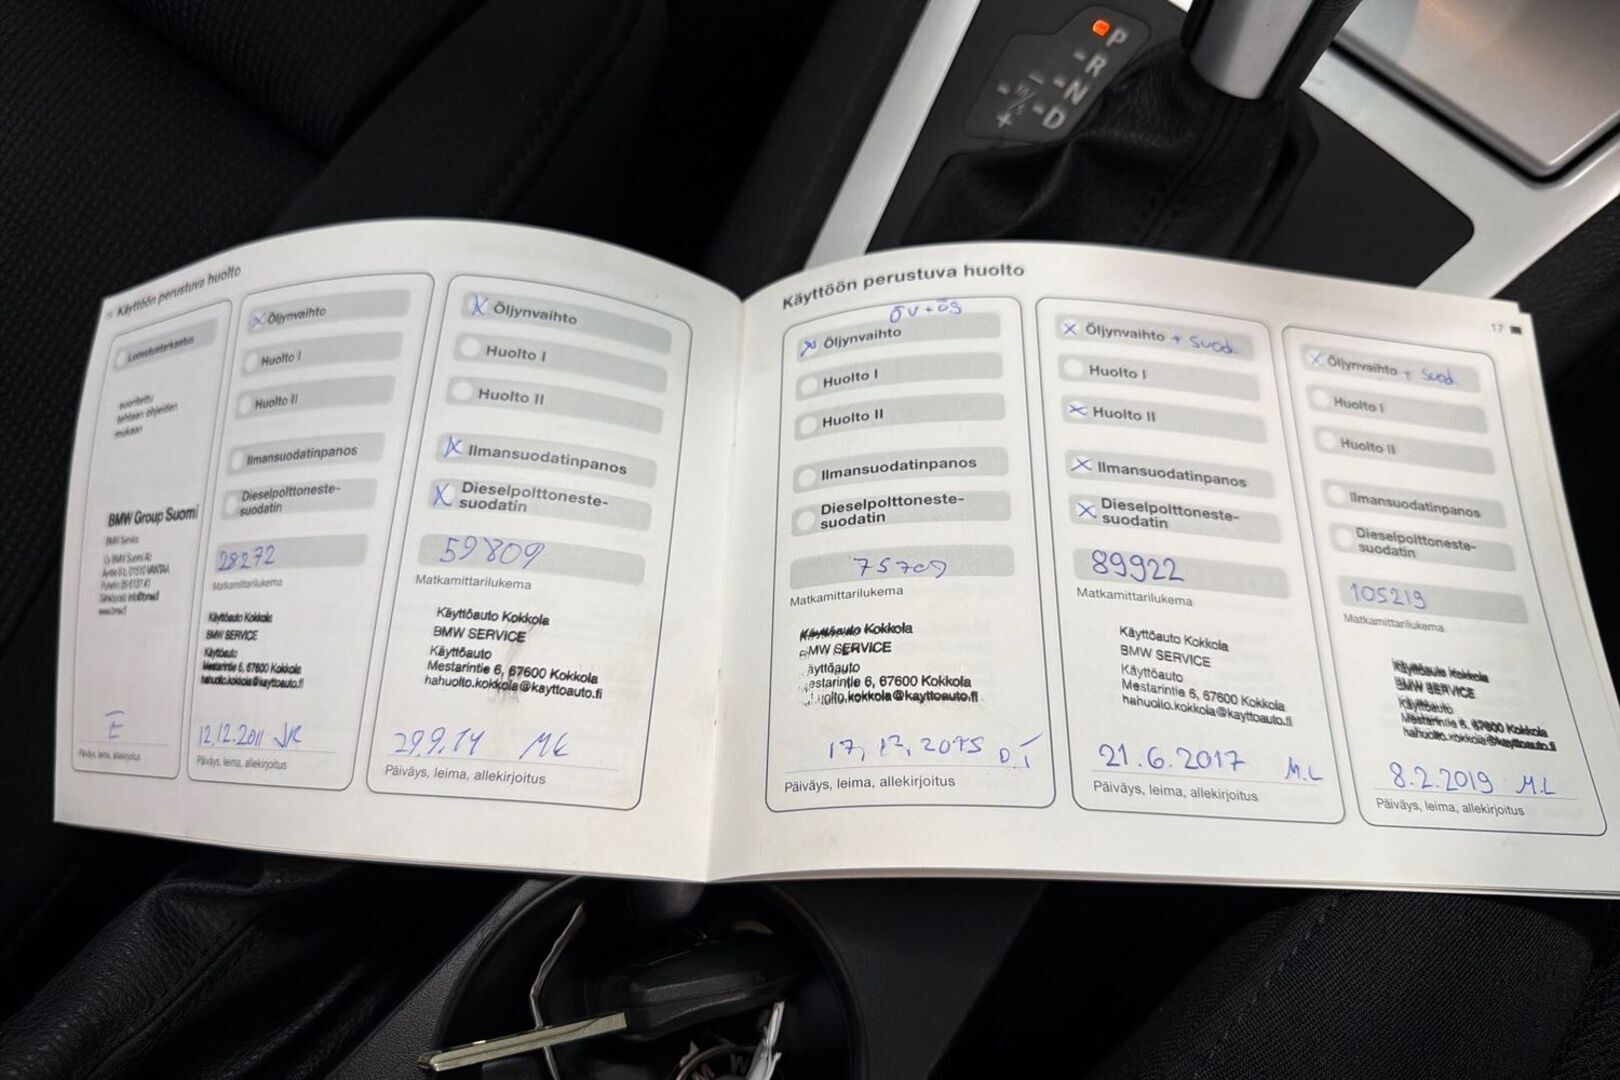 Käyttöön perustuva huolto
Luovutustarkastus
suoritettu
tehtaan ohjeiden
mukaan
BMW Group Suomi
BMW Service
Oy BMW Suomi Ab
E
Päiväys, leima, allekirjoitus
x Öljynvaihto
Huolto I
Huolto II
Ilmansuodatinpanos
Dieselpolttoneste-
suodatin
28272
Matkamittarilukema
Käyttöauto Kokkola
BMW SERVICE
Käyttöauto
Mestarintie 6, 67600 Kokkola
hahuolto.kokkola@kayttoauto.fi
12.12.2011 JR
Päiväys, leima, allekirjoitus
x Öljynvaihto
Huolto I
Huolto II
x Ilmansuodatinpanos
x Dieselpolttoneste-
suodatin
59809
Matkamittarilukema
Käyttöauto Kokkola
BMW SERVICE
Käyttöauto
Mestarintie 6, 67600 Kokkola
hahuolto.kokkola@kayttoauto.fi
29.9.14 MK
Päiväys, leima, allekirjoitus
Käyttöön perustuva huolto
17
ÖV+ÖS
x Öljynvaihto
Huolto I
Huolto II
Ilmansuodatinpanos
Dieselpolttoneste-
suodatin
75709
Matkamittarilukema
Käyttöauto Kokkola
MW SERVICE
äyttöauto
estarintie 6, 67600 Kokkola
olto.kokkola@kayttoauto.fi
17.12.2015 D.I
Päiväys, leima, allekirjoitus
x Öljynvaihto + suod.
Huolto I
x Huolto II
x Ilmansuodatinpanos
x Dieselpolttoneste-
suodatin
89922
Matkamittarilukema
Käyttöauto Kokkola
BMW SERVICE
Käyttöauto
Mestarintie 6, 67600 Kokkola
hahuolto.kokkola@kayttoauto.fi
21.6.2017 M.L
Päiväys, leima, allekirjoitus
x Öljynvaihto + suod.
Huolto I
Huolto II
Ilmansuodatinpanos
Dieselpolttoneste-
suodatin
105219
Matkamittarilukema
Käyttöauto Kokkola
BMW SERVICE
Käyttöauto
Mestarintie 6, 67600 Kokkola
hahuolto.kokkola@kayttoauto.fi
8.2.2019 M.L
Päiväys, leima, allekirjoitus
P
R
N
D
M/S
+
-